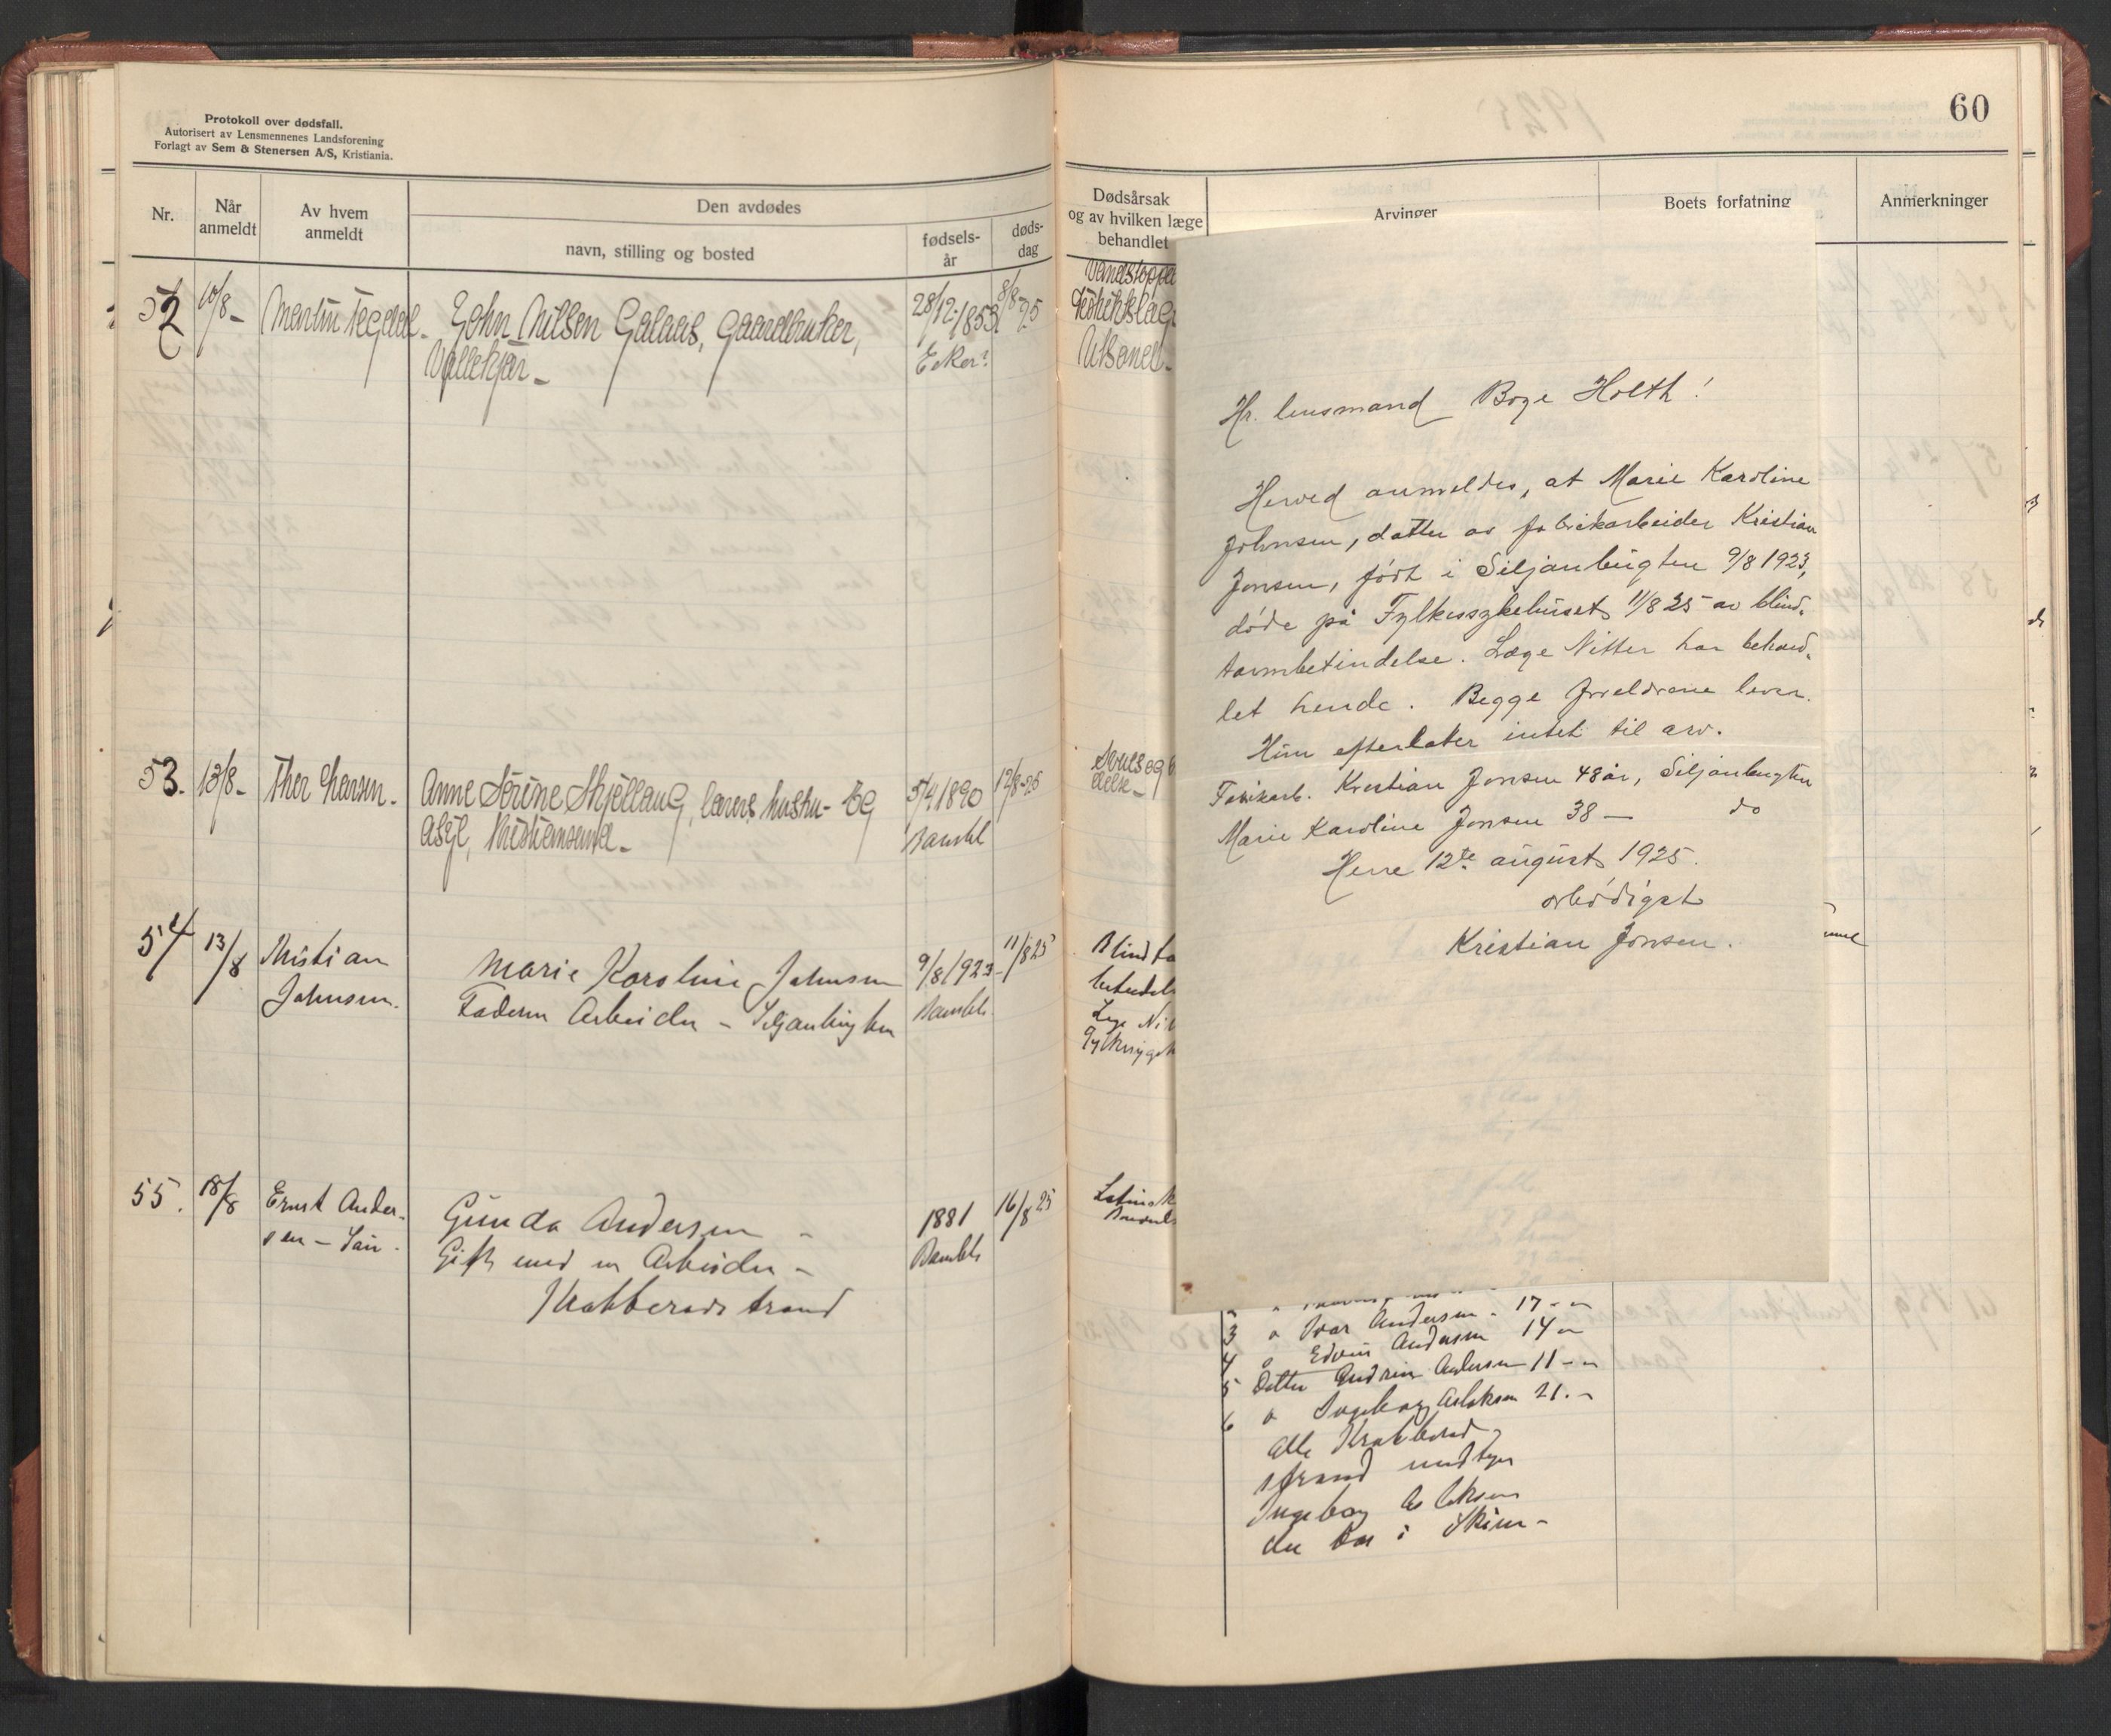 Protokoll over dødsfall.
Autorisert av Lensmennenes Landsforening
Forlagt av Sem & Stenersen A/S, Kristiania.
Nr.
Når anmeldt
Av hvem anmeldt
Den avdødes
navn, stilling og bosted
fødsels-
år
døds-
dag
52 10/8- Martin Fegdal. John Nilsen Galaas, Gaardbruker, 28/12-1853 8/8-25
Vallekjær- Eiker?
53. 13/8- Thor 
Anne Sørine Skjellaug, lærers hustru- 5/4 1890 12/8-25
Kristiansund- Bamble
54 13/8 Kristian Marie Karoline Johnsen 9/8 1923- 11/8 25
Johnsen. Faderen Arbeider - Siljanbugten Bamble.
55. 18/8 Ernst Ander- Gunda Andersen - 1881 16/8 25
sen - Gift med en Arbeider - Bamble
strand
60
Dødsårsak
og av hvilken læge
behandlet
Arvinger
Boets forfatning
Anmerkninger
Blindta
Læge Ni
Hr. lensmand Boye Holth!
Herved anmeldes, at Marie Karoline
Johnsen, datter av fabrikarbeider Kristian
Jonsen, født i Siljanbugten 9/8 1923,
døde på Fylkessykehuset 11/8 25 av blind-
tarmbetindelse. Læge Nitter har behand-
let hende. Begge forældrene lever.
Hun efterlater intet til arv.
Fabrikarb. Kristian Jonsen 48 år, Siljanbugten
Marie Karoline Jonsen 38 — do
Herre 12te august 1925.
ærbødigst
Kristian Jonsen.
3 " Ivar Andersen - 17 - "
4 " Edvin Andersen 14 "
5 Datter Andersen 11 - "
6 " Ingeborg Aslaksen 21. -
alle
strand undtagen
Ingeborg Aslaksen
der bor i Skien -